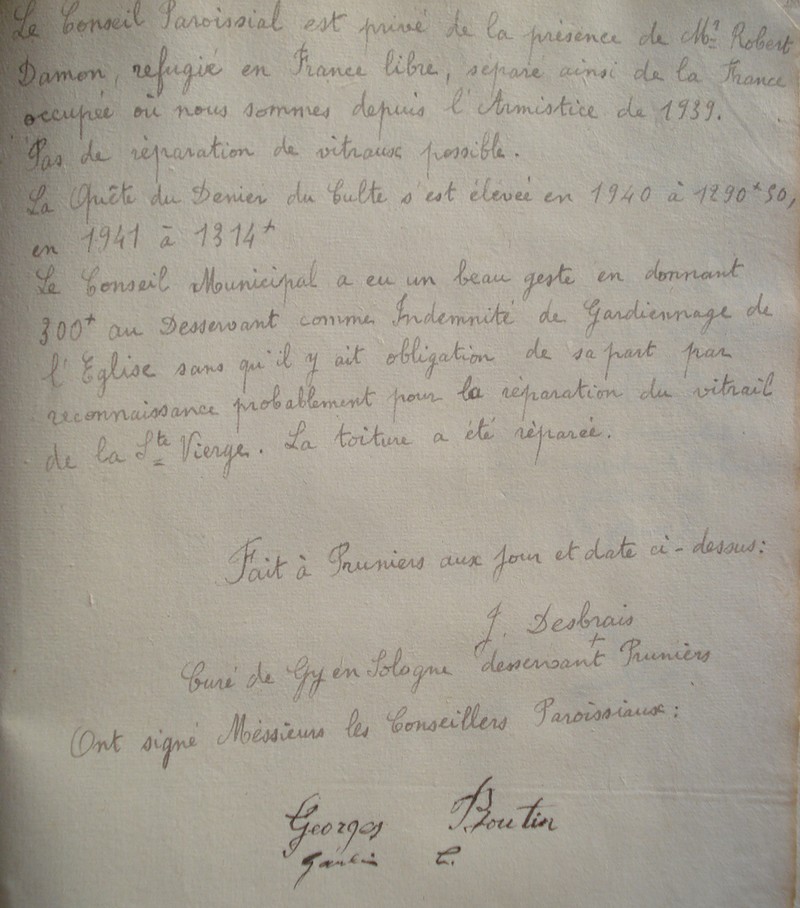 Le Conseil Paroissial est privé de la présence de Mr Robert
Damon, refugié en France libre, séparé ainsi de la France
occupée où nous sommes depuis l'Armistice de 1939.
Pas de réparation de vitraux possible.
La Quête du Denier du Culte s'est élevée en 1940 à 1290+50,
en 1941 à 1314+
Le Conseil Municipal a eu un beau geste en donnant
300+ au Desservant comme Indemnité de Gardiennage de
l'Eglise sans qu'il y ait obligation de sa part par
reconnaissance probablement pour la réparation du vitrail
de la Ste Vierge. La toiture a été réparée.
Fait à Pruniers aux jour et date ci-dessus:
J. Desbrais
+
Curé de Gy en Sologne desservant Pruniers
Ont signé Méssieurs les Conseillers Paroissiaux:
Georges Boutin
C.